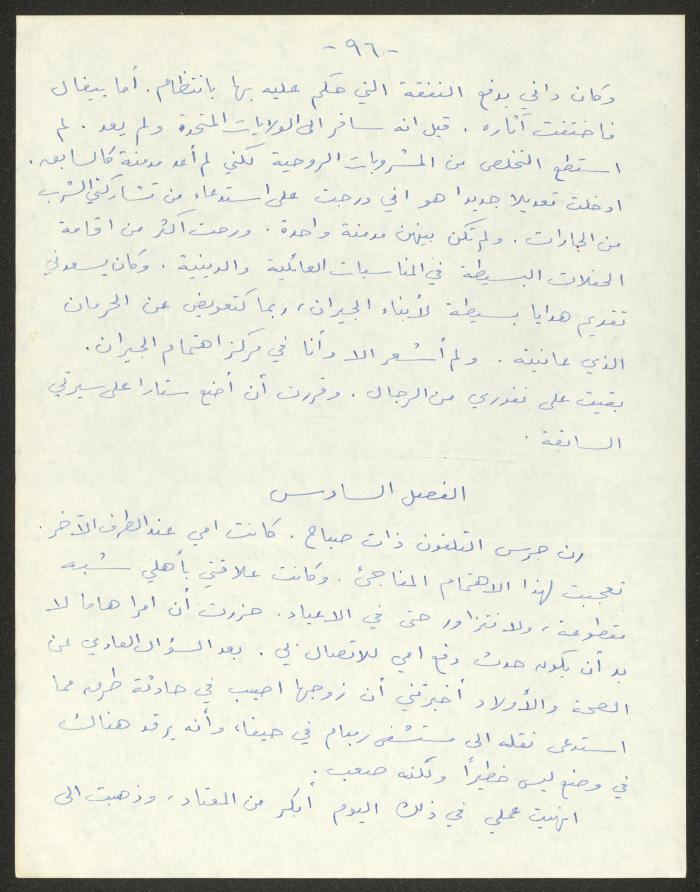 - ٩٦ -
وكان داني يدفع النفقة التي حكم عليه بها بانتظام. أما ييغال
فاختفت آثاره. قيل انه سافر الى الولايات المتحدة ولم يعد. لم
استطع التخلص من المشروبات الروحية لكني لم أعد مدمنة كالسابق.
ادخلت تعديلا جديدا هو اني درجت على استدعاء من تشاركني الشرب
من الجارات. ولم تكن بينهن مدمنة واحدة. ورحت اكثر من اقامة
الحفلات البسيطة في المناسبات العائلية والدينية. وكان يسعدني
تقديم هدايا بسيطة لأبناء الجيران، ربما كتعويض عن الحرمان
الذي عانيته. ولم أشعر الا وأنا في مركز اهتمام الجيران.
بقيت على نفوري من الرجال. وقررت أن أضع ستارا على سيرتي
السابقة.
الفصل السادس
رن جرس التلفون ذات صباح. كانت امي عند الطرف الآخر.
تعجبت لهذا الاهتمام المفاجئ. وكانت علاقتي بأهلي شبه
مقطوعة، ولا نتزاور حتى في الاعياد. حزرت أن امرا هاما لا
بد أن يكون حدث دفع امي للاتصال بي. بعد السؤال العادي عن
الصحة والأولاد أخبرتني أن زوجها اصيب في حادثة طرق مما
استدعى نقله الى مستشفى رمبام في حيفا، وأنه يرقد هناك
في وضع ليس خطيرًا ولكنه صعب.
انهيت عملي في ذلك اليوم أبكر من المعتاد، وذهبت الى